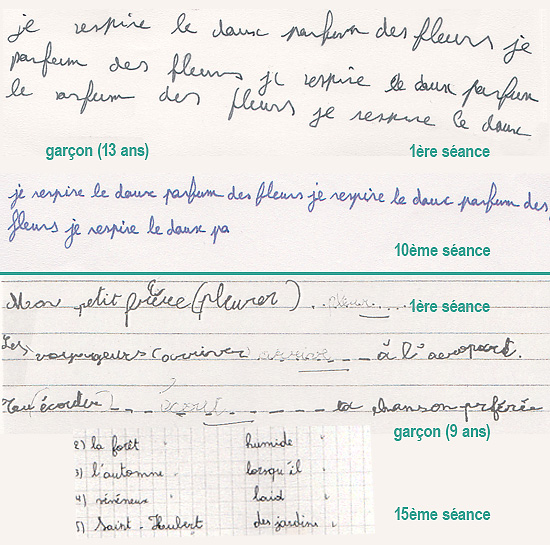 je respire le doux parfum des fleurs je
parfum des fleurs je respire le doux parfum
le arfum des fleurs je respire le doux
garçon (13 ans) 1ère séance
je respire le doux parfum des fleurs je respire le doux parfum des
fleurs je respire le doux pa
10ème séance
Mon petit frère (pleurer) 1ère séance
Les voyageurs (arriver) arrive à l'aeroport.
(écouter) écout ta chanson préférée
garçon (9 ans)
2) la forêt humide
3) l'automne lorsqu'il
4) vénéneux laid
5) Saint-Hubert des jardins
15ème séance